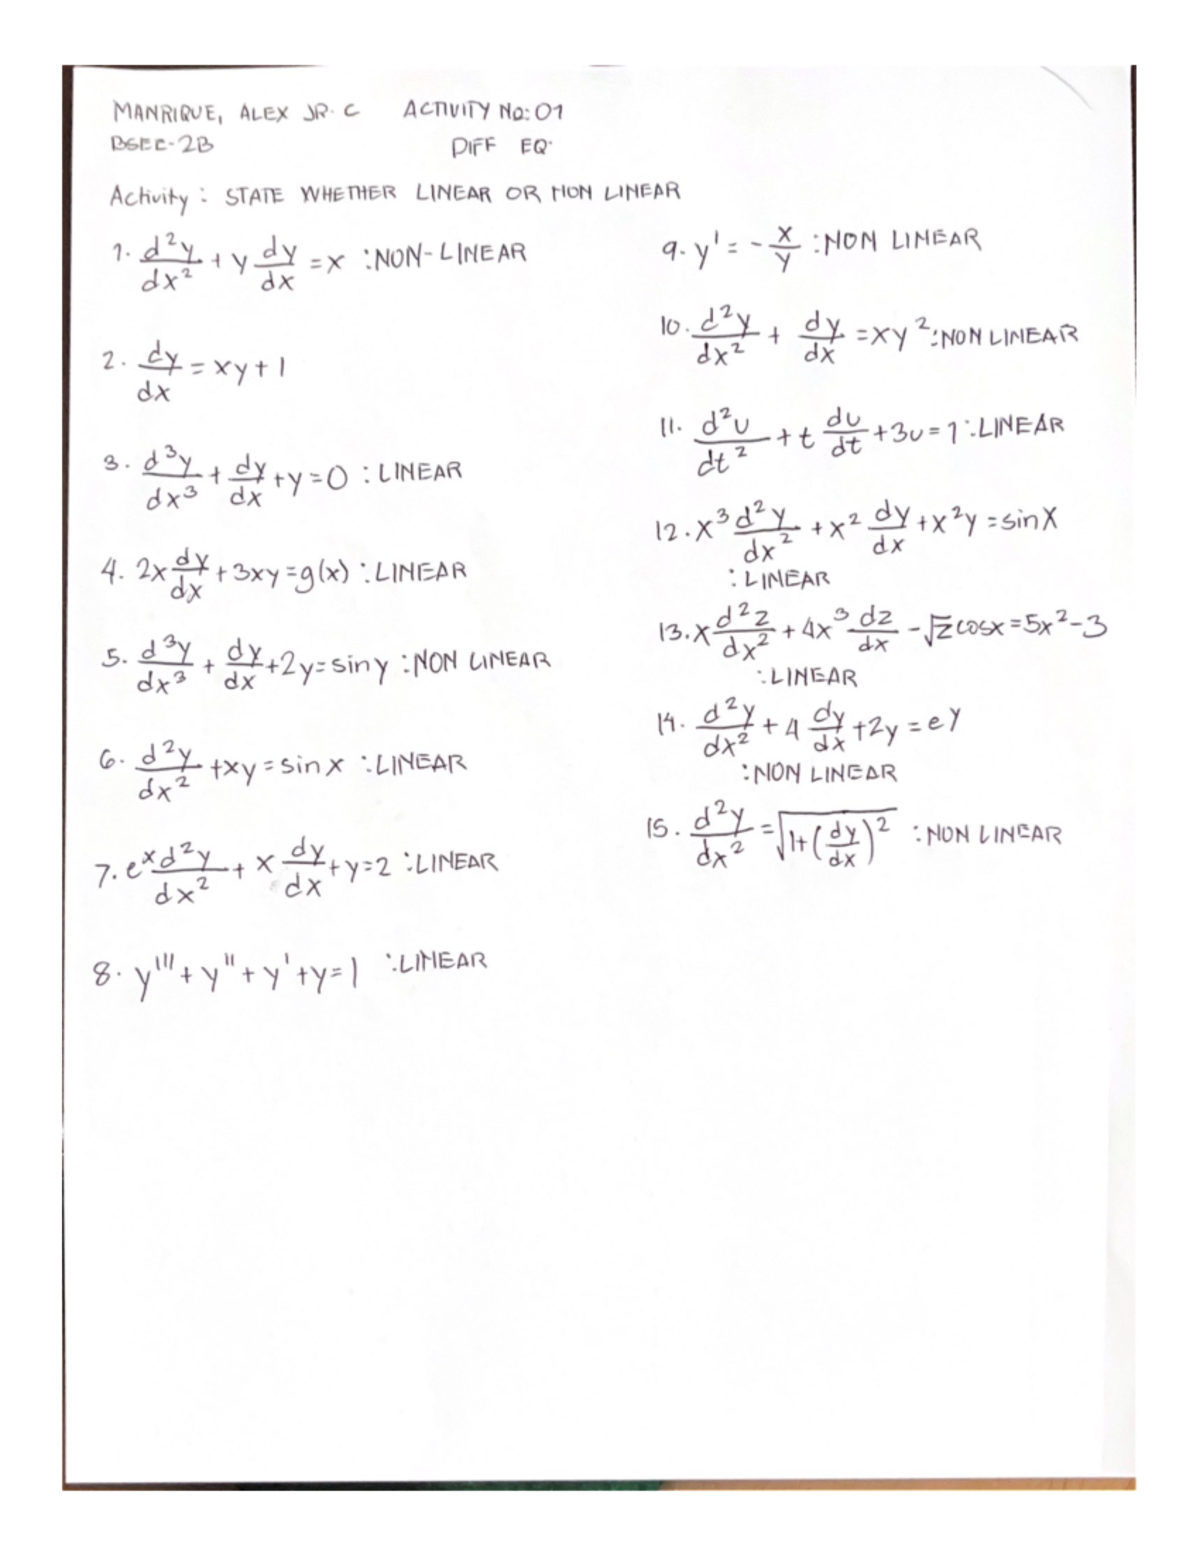 MANRIQUE, ALEX JR. C ACTIVITY NO: 01
BSEE-2B DIFF EQ.
Activity: STATE WHETHER LINEAR OR NON LINEAR
1. d²y/dx² + y dy/dx = x : NON-LINEAR
2. dy/dx = xy + 1
3. d³y/dx³ + dy/dx + y = 0 : LINEAR
4. 2x dy/dx + 3xy = g(x) : LINEAR
5. d³y/dx³ + dy/dx + 2y = sin y : NON LINEAR
6. d²y/dx² + xy = sin x : LINEAR
7. eˣ d²y/dx² + x dy/dx + y = 2 : LINEAR
8. y''' + y'' + y' + y = 1 : LINEAR
9. y' = - x/y : NON LINEAR
10. d²y/dx² + dy/dx = xy² : NON LINEAR
11. d²u/dt² + t du/dt + 3u = 1 : LINEAR
12. x³ d²y/dx² + x² dy/dx + x²y = sin X
: LINEAR
13. x d²z/dx² + 4x³ dz/dx - √z cosx = 5x² - 3
: LINEAR
14. d²y/dx² + 4 dy/dx + 2y = e^y
: NON LINEAR
15. d²y/dx² = √(1 + (dy/dx)²) : NON LINEAR